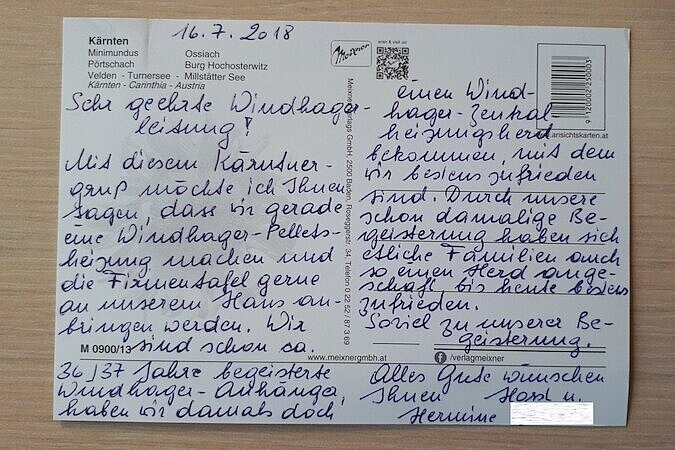 16.7.2018
Kärnten
Minimundus Ossiach
Pörtschach Burg Hochosterwitz
Velden - Turnersee - Millstätter See
Kärnten - Carinthia - Austria
Sehr geehrte Windhager-
leitung!
Mit diesem Kärntner-
gruß möchte ich Ihnen
sagen, dass wir gerade
eine Windhager-Pellets-
heizung machen und
die Firmentafel gerne
an unserem Haus an-
bringen werden. Wir
M 0900/13 sind schon ca.
36/37 Jahre begeisterte
Windhager-Anhänger,
haben wir damals doch
Meixner
scan & visit us!
Meixner Verlags GmbH, 2500 Baden, Roseggerstr. 34, Telefon 0 22 52 / 87 3 69
9120002250003
ansichtskarten.at
einen Wind-
hager-Zentral-
heizungsherd
bekommen, mit dem
wir bestens zufrieden
sind. Durch unsere
schon damalige Be-
geisterung haben sich
etliche Familien auch
so einen Herd ange-
schaft, bis heute bestens
zufrieden.
Soviel zu unserer Be-
geisterung.
www.meixnergmbh.at
/verlagmeixner
Alles Gute wünschen
Ihnen u.
Hermine